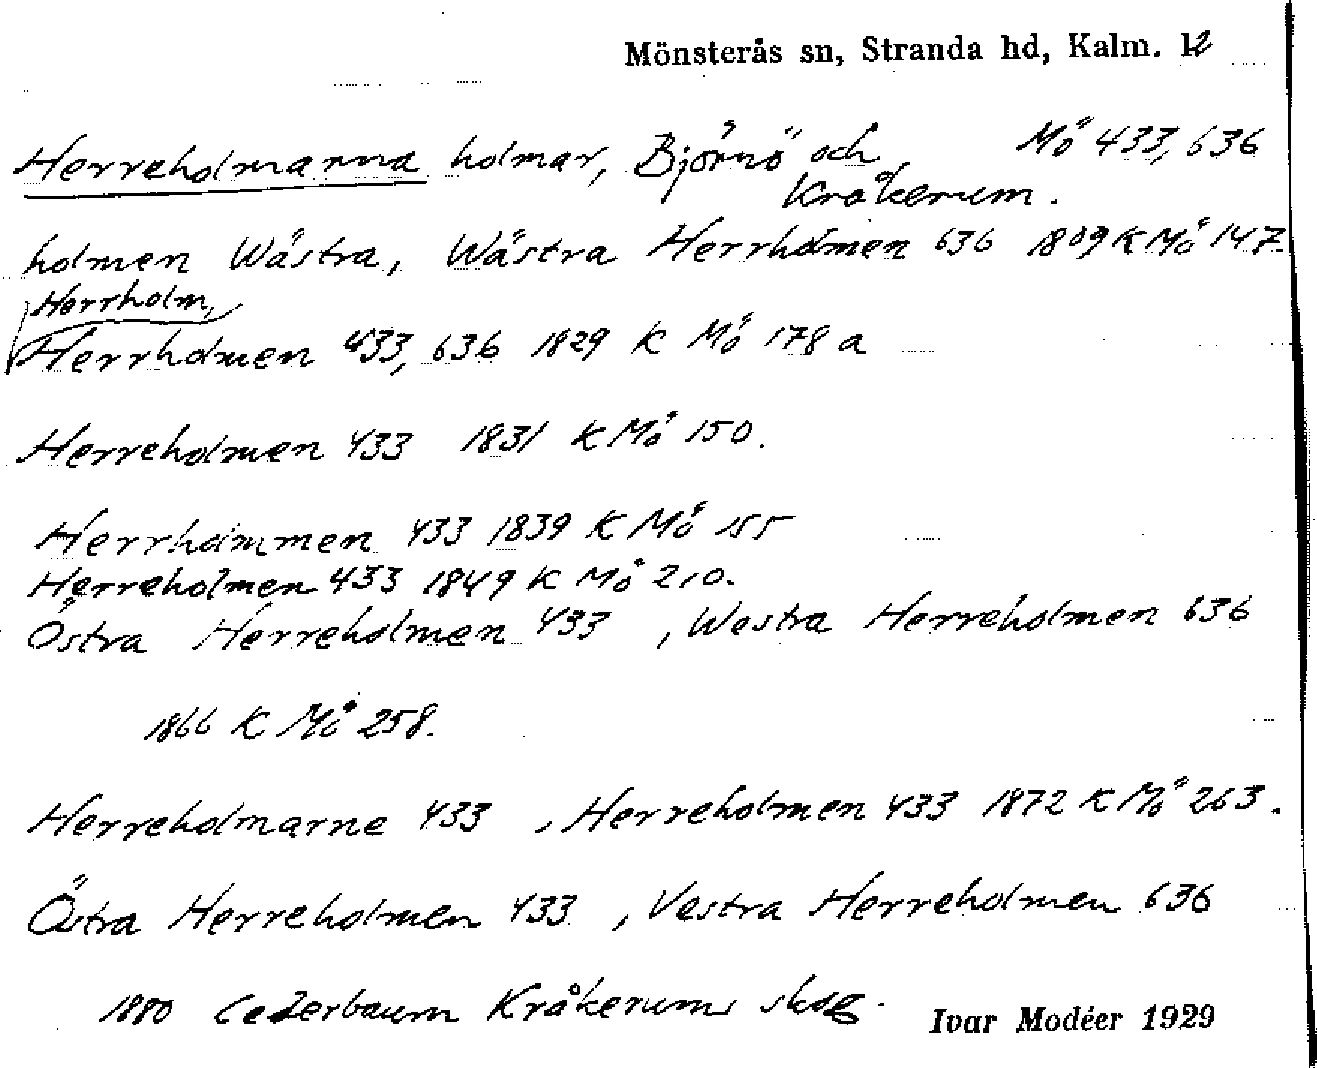 Mönsterås sn, Stranda hd, Kalm. 12
Herreholmarna holmar, Björnö och Mö 433, 636
Kråkerum.
holmen Wästra, Wästra Herrholmen 636 1809 K Mö 147.
Herrholm,
Herrholmen 433, 636 1829 K Mö 178 a
Herreholmen 433 1831 K Mö 150.
Herrhammen 433 1839 K Mö 155
Herreholmen 433 1849 K Mö 210.
Östra Herreholmen 433 , Westra Herreholmen 636
1866 K Mö 258.
Herreholmarne 433 , Herreholmen 433 1872 K Mö 263.
Östra Herreholmen 433 , Vestra Herreholmen 636
1880 Cederbaum Kråkerums skog.
Ivar Modéer 1929